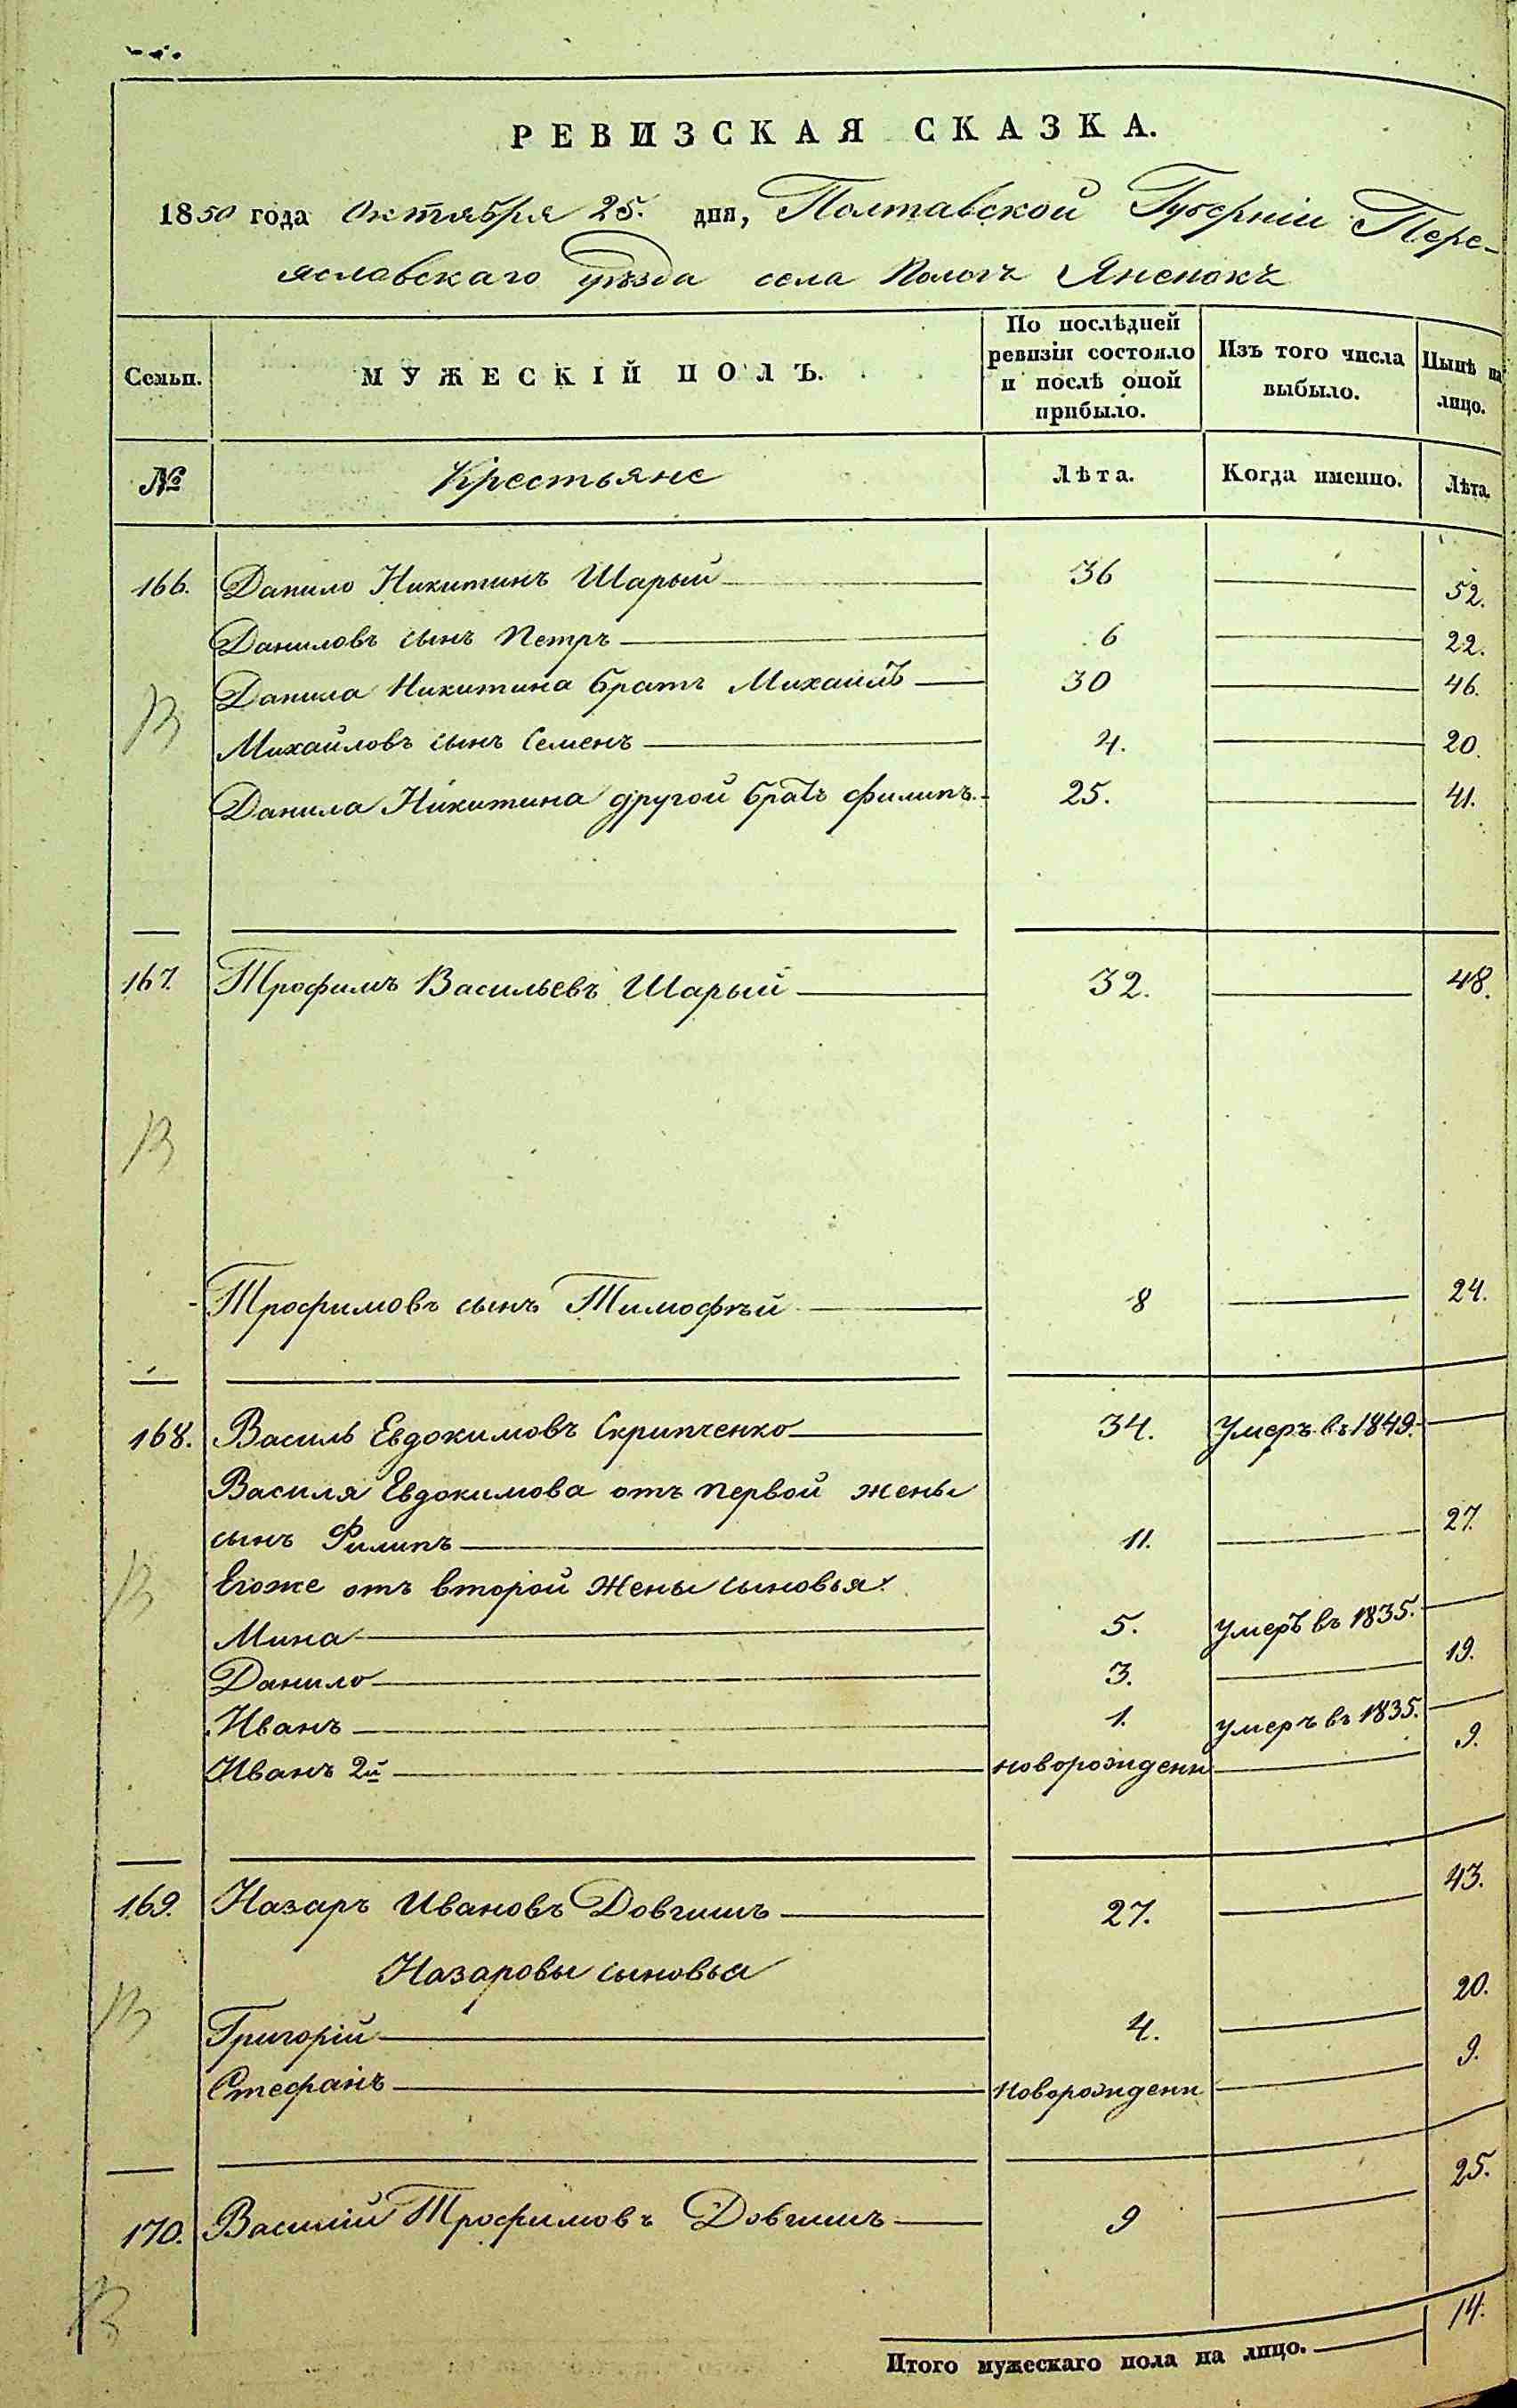 РЕВИЗСКАЯ СКАЗКА.
1850 года Октября 25. дня, Полтавской Губерніи Пере-
яславскаго уѣзда села Пологъ Яненокъ
Семьи. МУЖЕСКІЙ ПОЛЪ. По послѣдней ревизіи состояло и послѣ оной прибыло. Изъ того числа выбыло. Нынѣ на лицо.
№ Крестьяне Лѣта. Когда именно. Лѣта.
166. Данило Никитинъ Шарый 36 52.
Даниловъ сынъ Петръ 6 22.
Данила Никитина братъ Михаилъ 30 46.
Михайловъ сынъ Семенъ 4. 20.
Данила Никитина другой братъ Филипъ. 25. 41.
167. Трофимъ Васильевъ Шарый 32. 48.
Трофимовъ сынъ Тимофѣй 8 24.
168. Василь Евдокимовъ Скрипченко 34. Умеръ въ 1849.
Василя Евдокимова отъ первой жены
сынъ Филипъ 11. 27.
Егоже отъ второй жены сыновья.
Мина 5. умеръ въ 1835.
Данило 3. 19.
Иванъ 1. умеръ въ 1835.
Иванъ 2й новорожденн 9.
169. Назаръ Ивановъ Довгишъ 27. 43.
Назаровы сыновья
Григорій 4. 20.
Стефанъ новорожденн 9.
170. Василій Трофимовъ Довгишъ 9 25.
Итого мужескаго пола на лицо. 14.